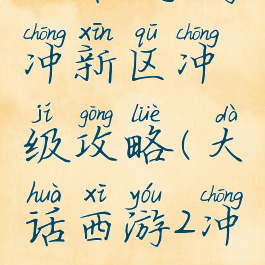 chōng xīn qū chōng
冲新区冲
jí gōng lüè dà
级攻略(大
huà xī yóu chōng
话西游2冲